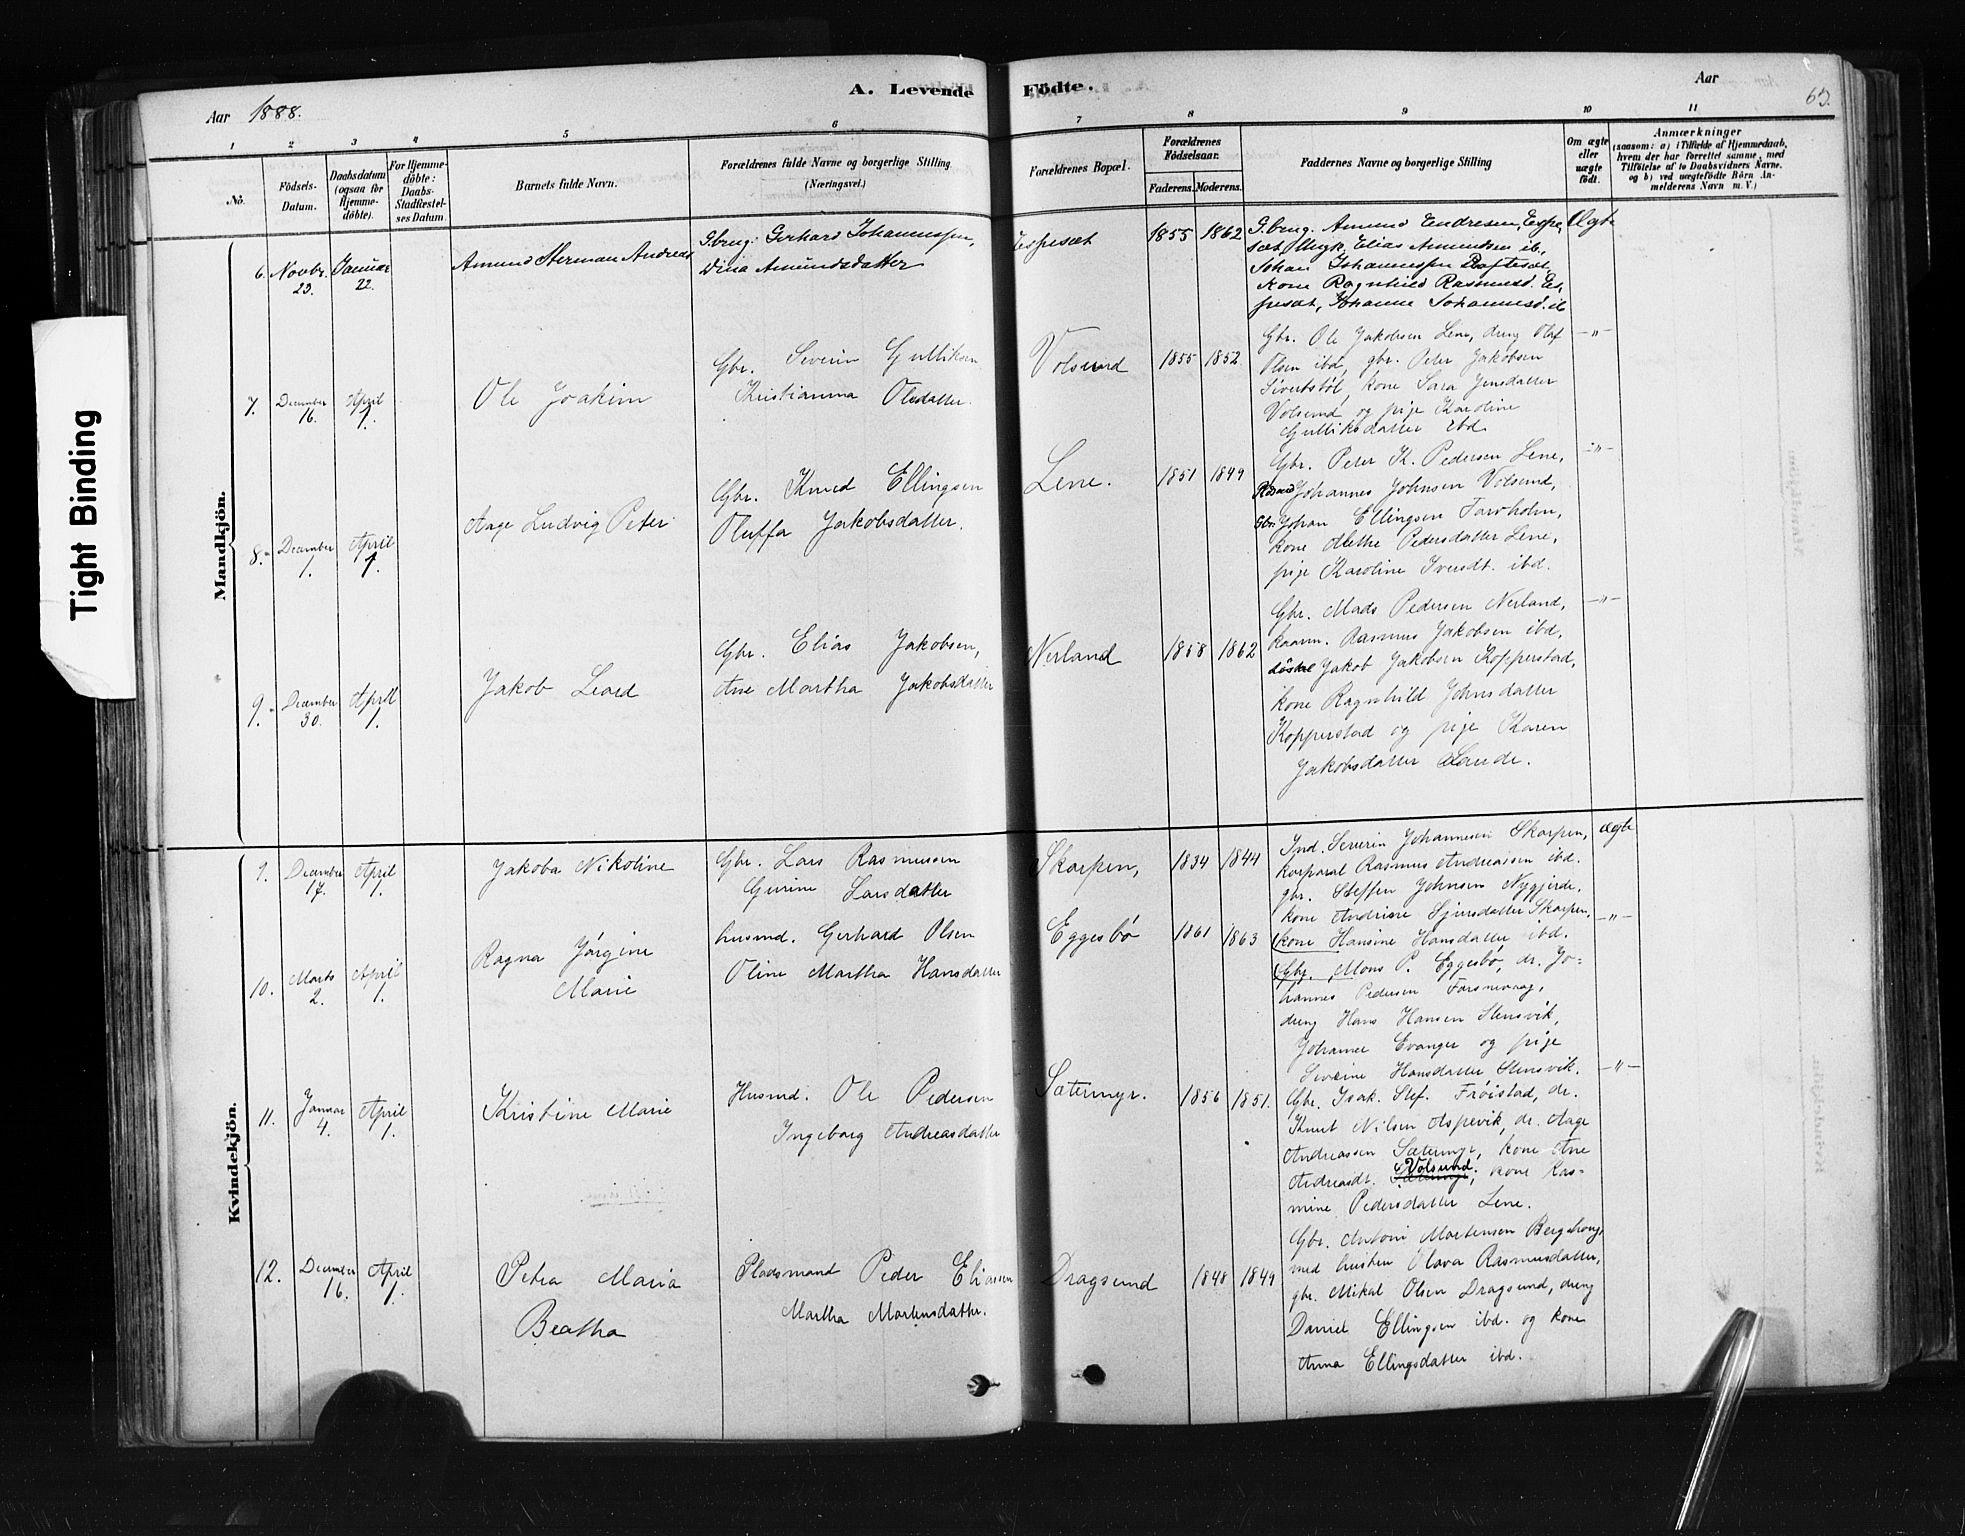 Tight Binding
Aar 1888.
A. Levende Födte.
Aar
63.
1 2 3 4 5 6 7 8 9 10 11
No.
Födsels-Datum.
Daabsdatum (ogsaa for Hjemme-döbte).
For Hjemme-döbte: Daabs-Stadfæstel-ses Datum.
Barnets fulde Navn.
Forældrenes fulde Navne og borgerlige Stilling (Næringsvei.)
Forældrenes Bopæl.
Forældrenes Födselsaar.
Faderens. Moderens.
Faddernes Navne og borgerlige Stilling
Om ægte eller uægte födt.
Anmærkninger
(saasom: a) i Tilfælde af Hjemmedaab, hvem der har forrettet samme, med Tilföielse af to Daabsvidners Navne. og b) ved uægtefödte Börn An-melderens Navn m. V.)
Mandkjön.
6. Novbr. 23. Januar 22.
Amund Herman Andreas
Gbrug. Gerhard Johannessen,
Dina Amundsdatter
Espesæt
1855 1862
Gbrug. Amund Endresen, Espe-
sæt, Ungk. Elias Amundsen ib,
Johan Johannessen Raftesæt,
Kone Ragnhild Rasmusd. Es-
pesæt, Johanne Johannesd. ib
Ægte
7. December 16. April 1.
Ole Joakim
Gbr. Severin Gulliksen
Kristianna Olsdatter.
Volsund
1855 1852
Gbr. Ole Jakobsen Lene, dreng Olaf
Olsen ibd, gbr. Peter Jakobsen
Sivertstøl, kone Sara Jensdatter
Volsund og pige Karoline
Gulliksdatter ibd.
—"—
8. December 1. April 1.
Aage Ludvig Peter
Gbr. Knud Ellingsen
Oluffa Jakobsdatter.
Lene.
1851 1849
Gbr. Peter K. Pedersen Lene,
Johannes Johnsen Volsund,
Gbr. Johan Ellingsen Torvholm,
kone Mette Pedersdatter Lene,
pige Karoline Iversdt. ibd.
—"—
9. December 30. April 1.
Jakob Leard
Gbr. Elias Jakobsen,
Ane Martha Jakobsdatter
Nerland
1858 1862
Gbr. Mads Pedersen Nerland,
kaarm. Rasmus Jakobsen ibd,
Jakob Jakobsen Kopperstad,
kone Ragnhild Johnsdatter
Kopperstad og pige Karen
Jakobsdatter Sande.
—"—
Kvindekjön.
9. December 17. April 1.
Jakoba Nikoline
Gbr. Lars Rasmussen
Gurine Larsdatter
Skarpen,
1834 1844
Ind. Severin Johannesen Skarpen,
korporal Rasmus Andreassen ibd.
gbr. Steffen Johnsen Nygjerde,
kone Andrine Sjursdatter Skarpen,
kone Hansine Hansdatter ibd.
ægte
10. Marts 2. April 1.
Ragna Jørgine
Marie
husmd. Gerhard Olsen
Oline Martha Hansdatter
Eggesbø
1861 1863
Gbr. Mons P. Eggesbø, dr. Jo-
hannes Pedersen Torsnvaag,
dreng Hans Hansen Stensvik,
Johanne Evanger og pige
Severine Hansdatter Stensvik.
—"—
11. Januar 4. April 1.
Kristine Marie
Husmd. Ole Pedersen
Ingeborg Andreasdatter
Sætermyr.
1856 1851.
Gbr. Isak. Stef. Frøistad, dr.
Knut Nilsen Aspevik, dr. Aage
Andreassen Sætermyr, kone Ane
Andreasdt. Volsund, kone Ras-
mine Pedersdatter Lene.
—"—
12. December 16. April 1.
Petra Maria
Beatha
Pladsmand Peder Eliassen
Martha Martensdatter.
Dragsund
1848 1849
Gbr. Antoni Martensen Bergshaug,
med hustru Olava Rasmusdatter,
gbr. Mikal Olsen Dragsund, dreng
Daniel Ellingsen ibd. og kone
Anna Ellingsdatter ibd.